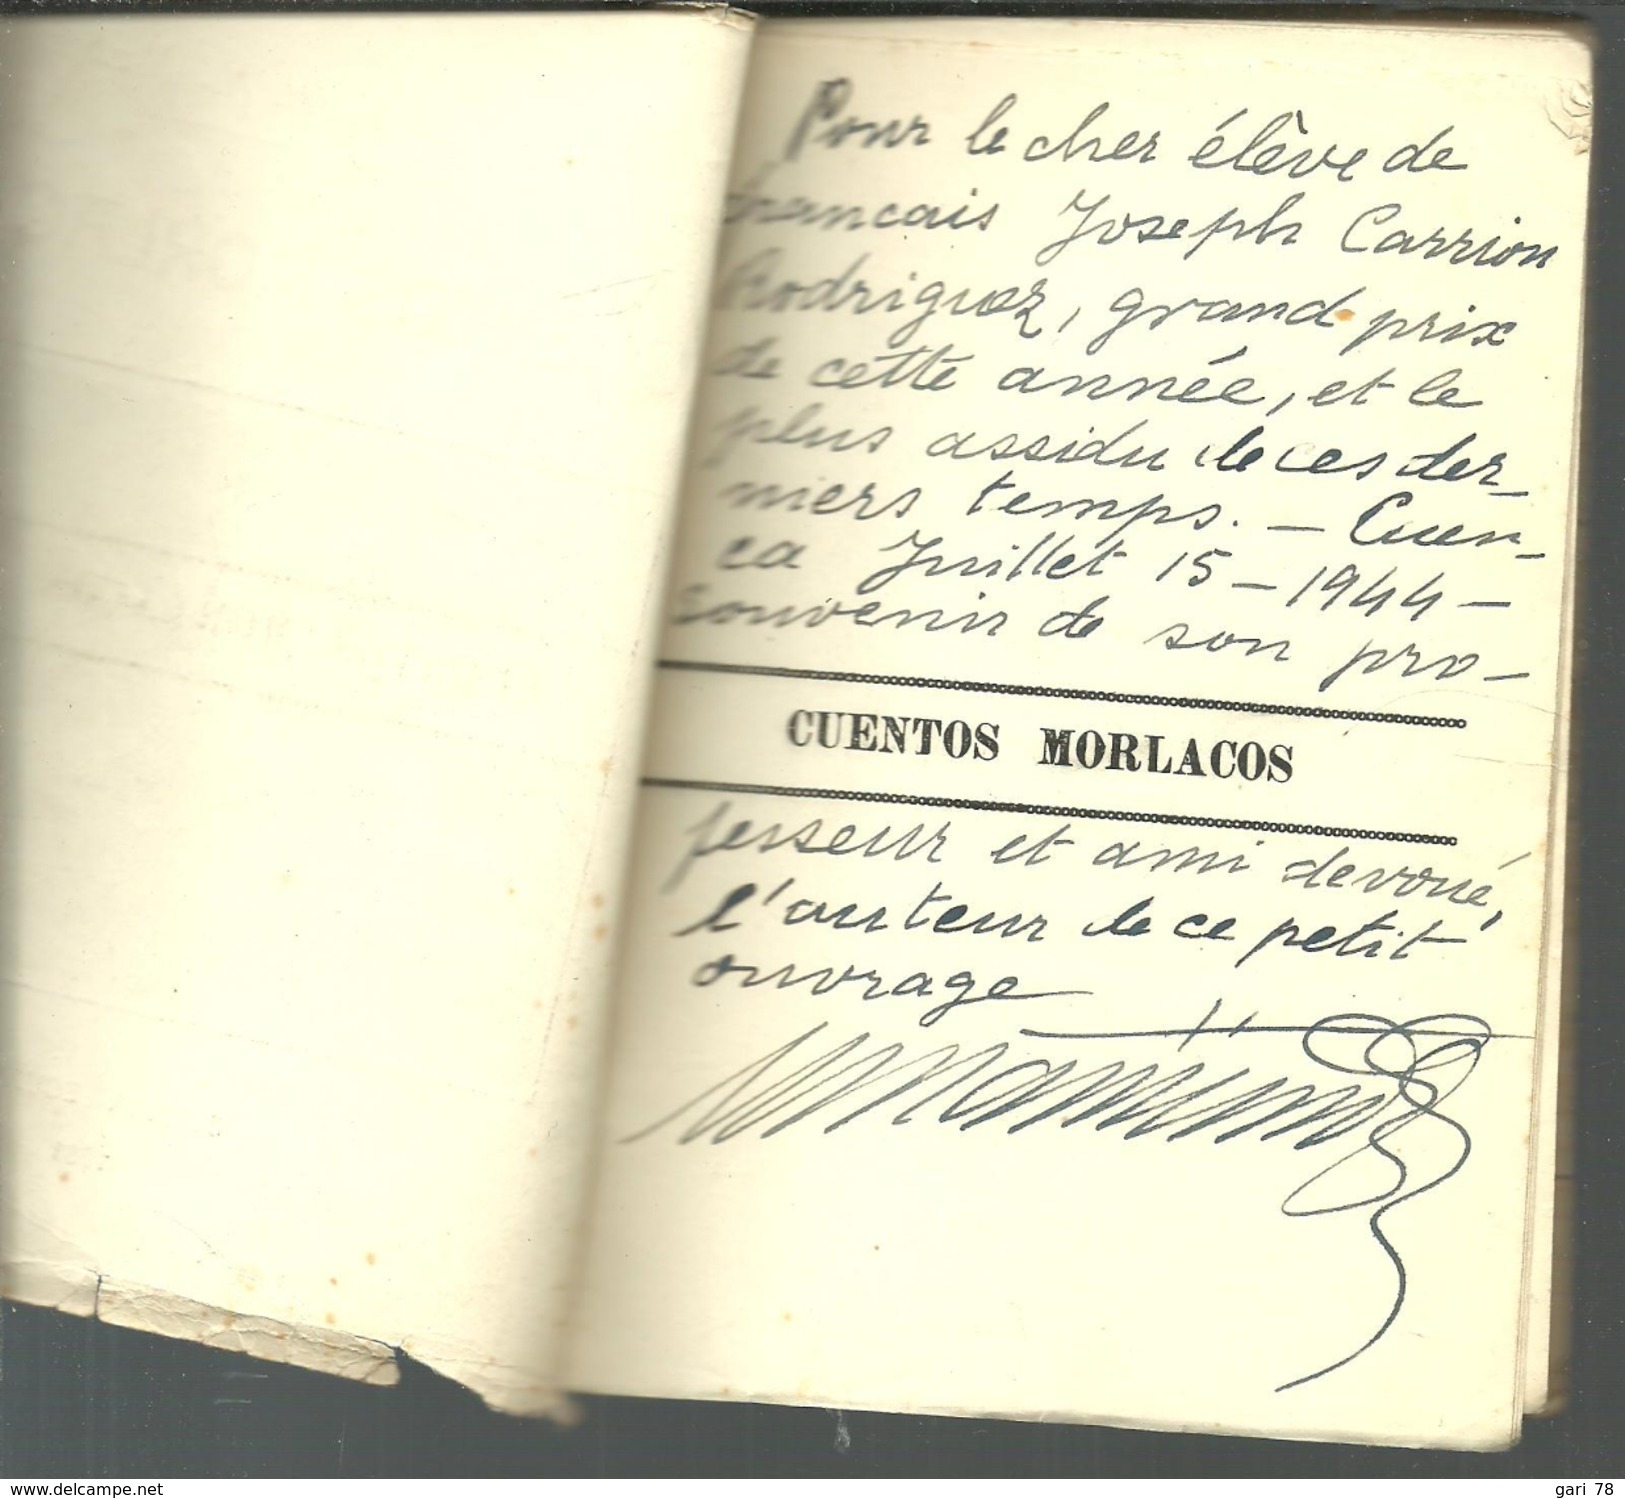 Pour le cher élève de
francais Joseph Carrion
Rodriguez, grand prix
de cette année, et le
plus assidu de ces der-
niers temps. — Cuen-
ca Juillet 15 — 1944 —
souvenir de son pro-
CUENTOS MORLACOS
fesseur et ami devoué,
l'auteur de ce petit
ouvrage
www.delcampe.net
gari 78